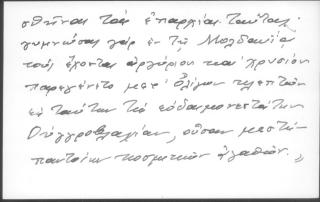 σθῆναι τὰς ἐπαρχίας ταύτας
γυμνώσας γὰρ ἐν τῇ Μολδαυίᾳ
τοὺς ἔχοντας ἀργύριον καὶ χρυσίον
παρεγένετο μετ' ὀλίγων
ἐκ ταύτην τὴν εὐδαιμονεστάτην
Οὐγγροβλαχίαν, οὖσαν μεστὴν
παντοίων κοσμικῶν ἀγαθῶν. »